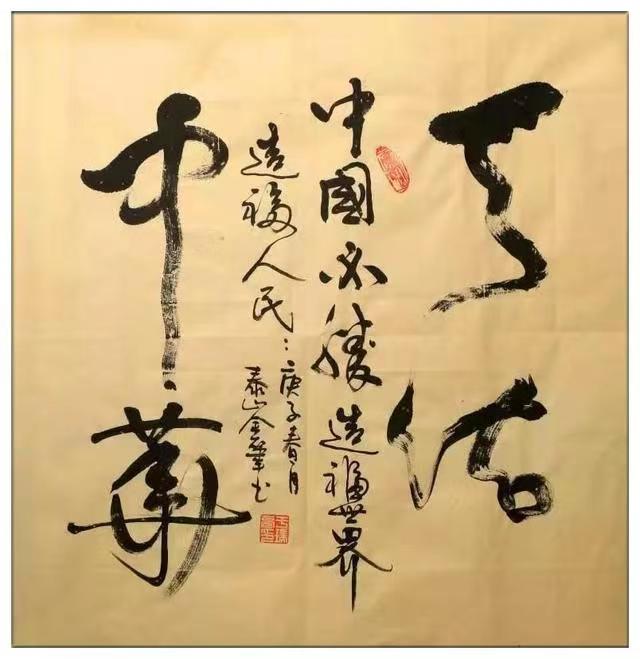 天佑
中國必勝造福世界
中華
造福人民:
庚子春月
泰山金華书